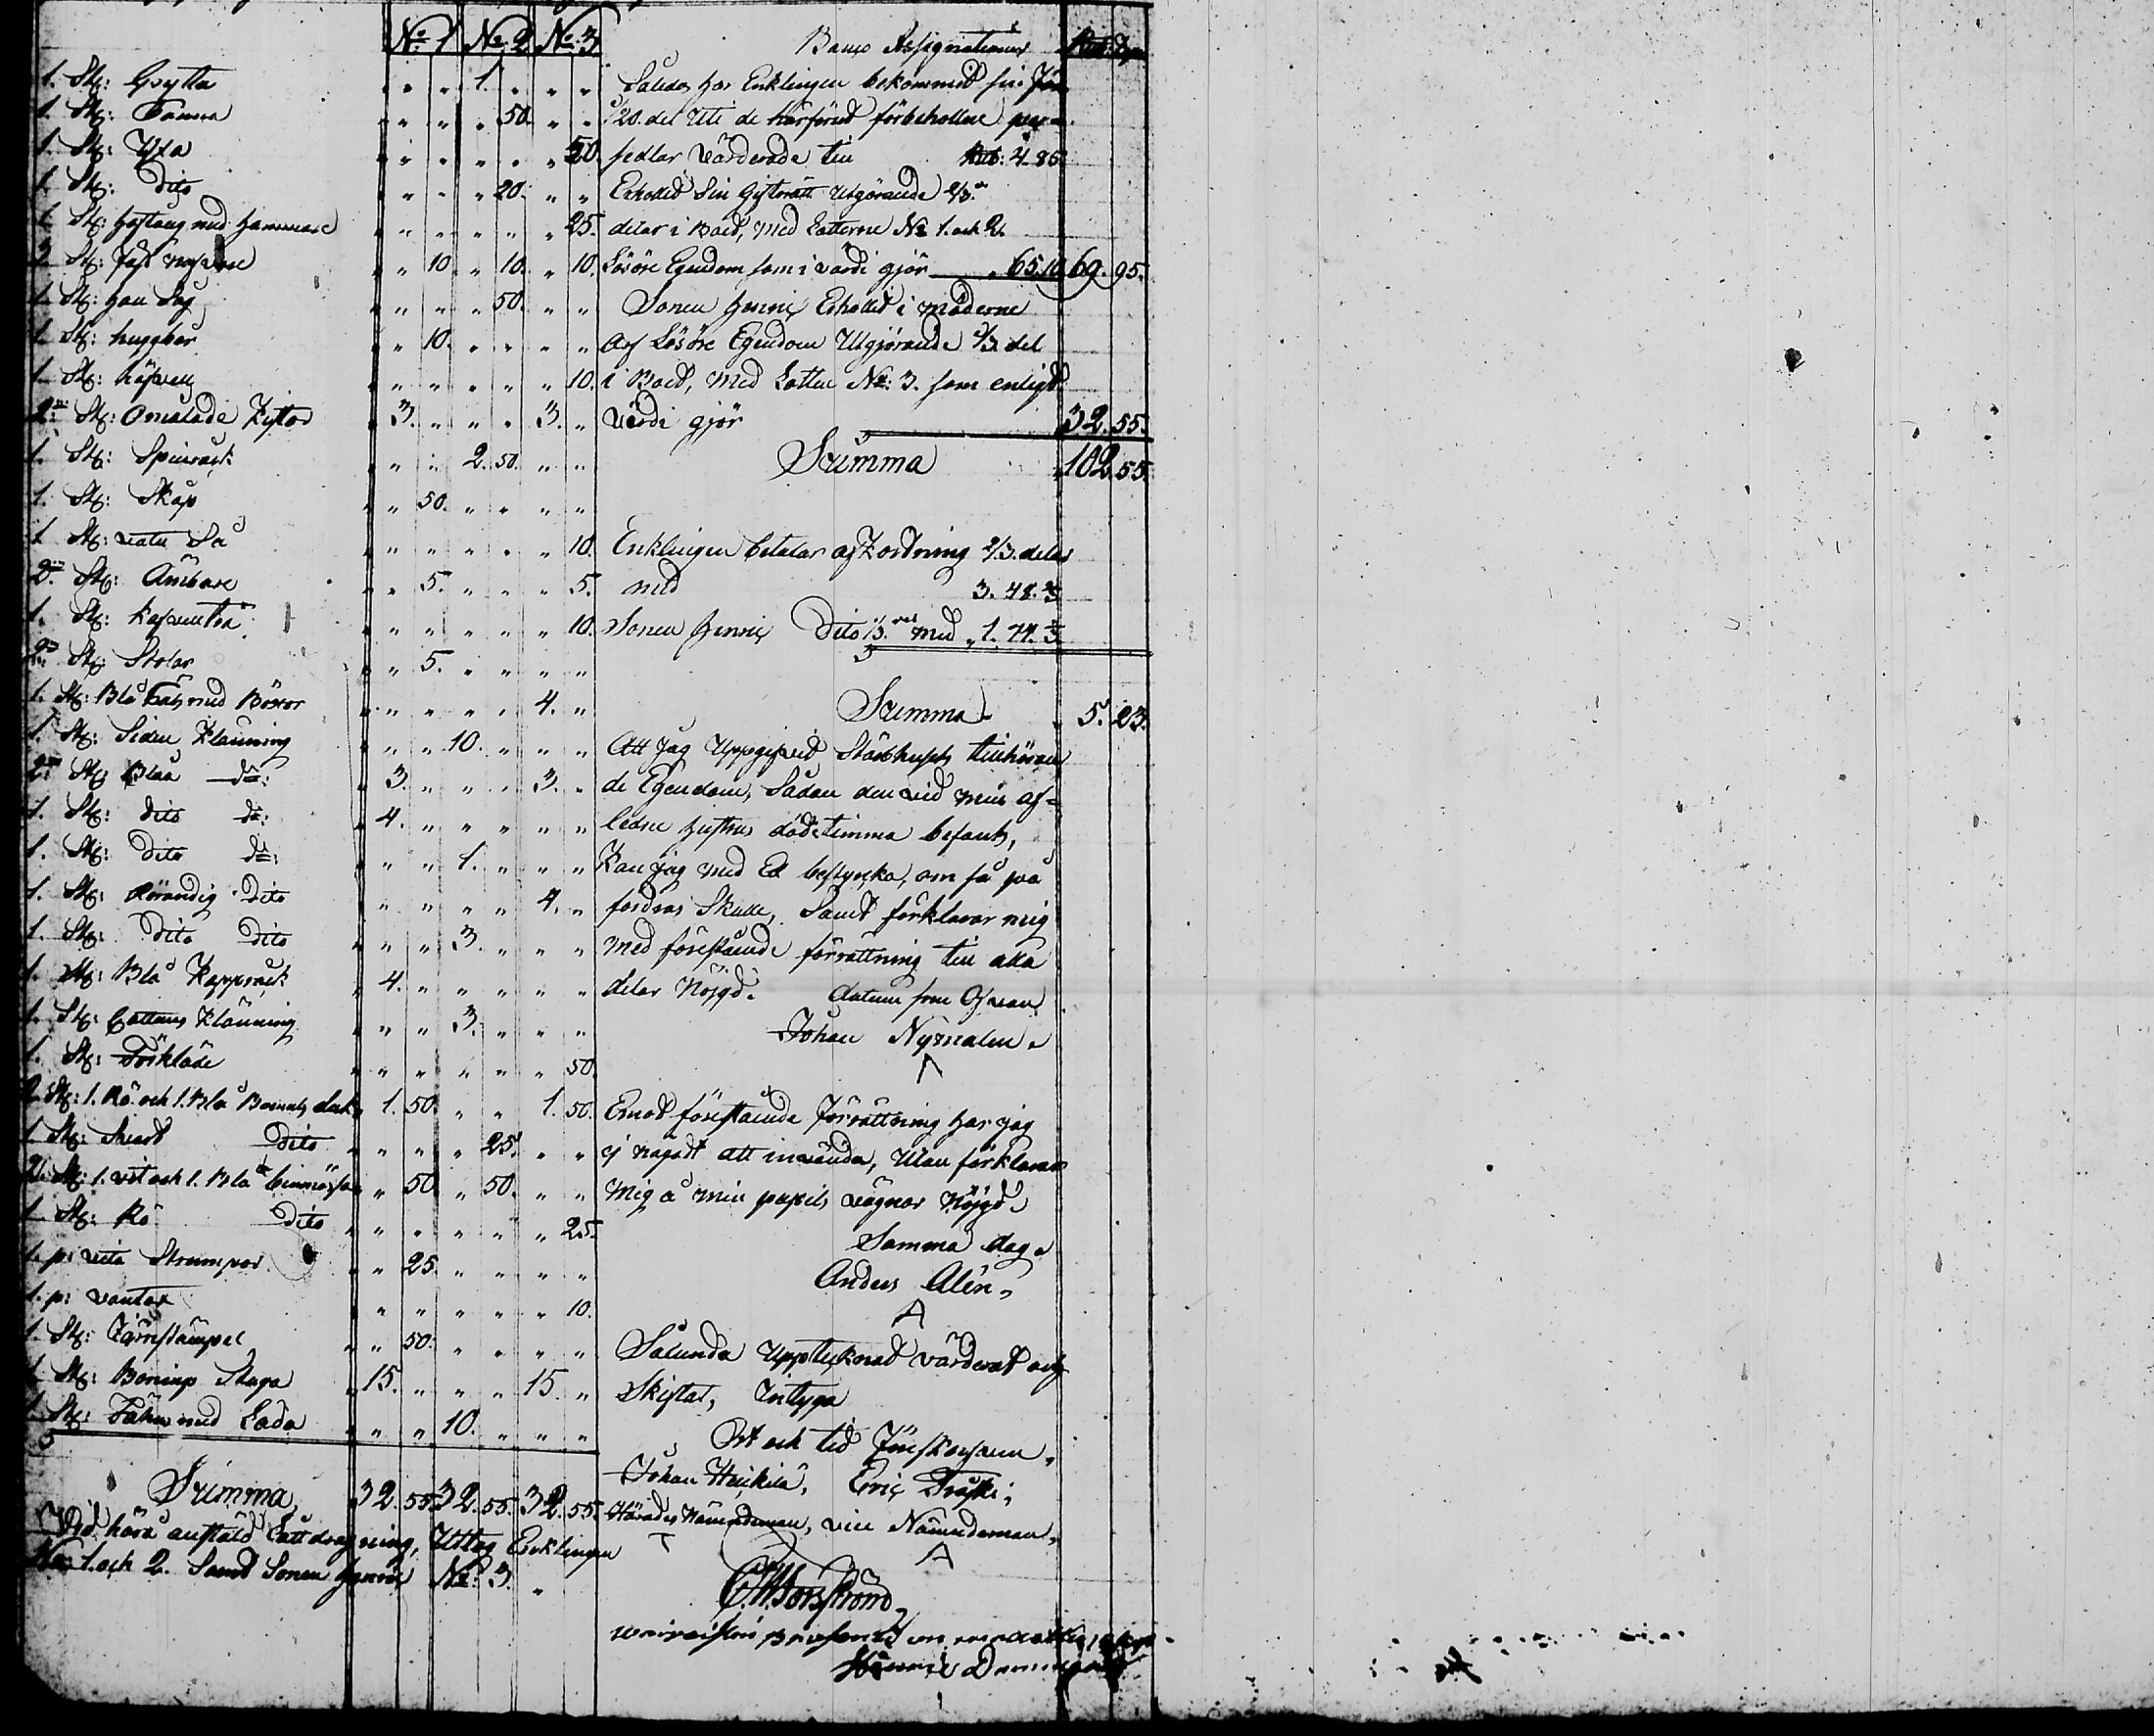 No. 1 No. 2 No. 3
1. St: Grytta " " " 1. " " "
1. St: Panna " " " " 50. " "
1. St: Yxa " " " " " " 50.
1. St: dito " " " " 20. " "
1. St: Hoftång med Hammare " " " " " " 25.
3. St: " " 10. " 10. " 10.
1. St: Han Såg " " " " 50. " "
1. St: " " 10. " " " "
1. St: " " " " " " 10.
2ne St: Omålade Kistor 3. " " " 3. "
1. St: Spinråck " " 2. 50. " "
1. St: Skåp " " 50. " " " "
1 St: vatu Så " " " " " " 10.
2ne St: Ämbare " " 5. " " " 5.
1. St: " " " " " " 10.
2ne St: Stolar " " 5. " " " "
1. St: Blå med Böxor " " " " " 4. "
1. St: Siden Klänning " " " 10. " " "
2ne St: Blåa do: 3. " " " 3. "
1. St: dito do: 4. " " " " "
1. St: dito do: " " " 1. " " "
1. St: Rörandig Dito " " " " " 4. "
1. St: Dito Dito " " " 3. " " "
1. St: Blå Kappråck 4. " " " " "
1. St: Cattuns Klänning " " " 3. " " "
1. St: Förkläde " " " " " " 50.
2. St: 1. Rö och 1. Blå Bomuls duk 1. 50. " " 1. 50.
1 St: Svart Dito " " " " 25. " "
2. St: 1. vit och 1. Blå " 50. " 50. " "
1 St: Rö Dito " " " " " " 25.
1. p: vita Strumpor " " 25. " " " "
1. p: vantar " " " " " " 10.
1. St: Järnstämpel " " 50. " " " "
1 St: Bonings Stuga 15. " " " 15. "
1 St: Fähus med Lada " " " 10. " " "
Summa, 32. 55. 32. 55. 32. 55.
Vid härå anstäld Lottdragning, Uttog Enklingen
No: 1. och 2. Samt Sonen Henric No: 3.
Banco Assignationer Rub:
Således har Enklingen bekommit sin För
1/20. del Uti de härförut förbehollne per-
sedlar Värderade till Rub: 4. 85.
Erhollit Sin Giftorätt Utgörande 2/3.
delar i Boed, med Lotterne No 1. och 2.
Lösöre Egendom som i värdi gjör 65.10. 69. 95.
Sonen Henric Erhollit i möderne
Arf Lösöre Egendom Utgjörande 1/3 del
i Boed, med Lotten No: 3. som enligt
Värdi gjör 32. 55.
Summa 102. 55.
Enklingen betalar afkordning 2/3. delar
med 3. 48. 2/3
Sonen Henric Dito 1/3. med 1. 74. 1/3
Summa 5. 23.
Att Jag Uppgifvit Stärbhusets tillhöran
de Egendom, Sådan den vid min af-
ledne Hustrus dödstimma befants,
Kan jag med Ed bestyrka, om så på
fordras Skulle, Samt förklarar mig
med förestående förrättning till alla
delar Nöjgd. datum som Ofvan
Johan Nyrnalen.
Emot förestående Förrättning har jag
ej någodt att invända, Utan förklarar
mig å min pupils vägnar Nöjgd
Samma dag.
Anders Alén,
Sålunda Upptecknat värderat och
Skiftat, Intyga
Ort och tid Förskrefvne,
Johan Heickilä, Eric Träski,
Härads Nämndeman, vice Nämndeman,